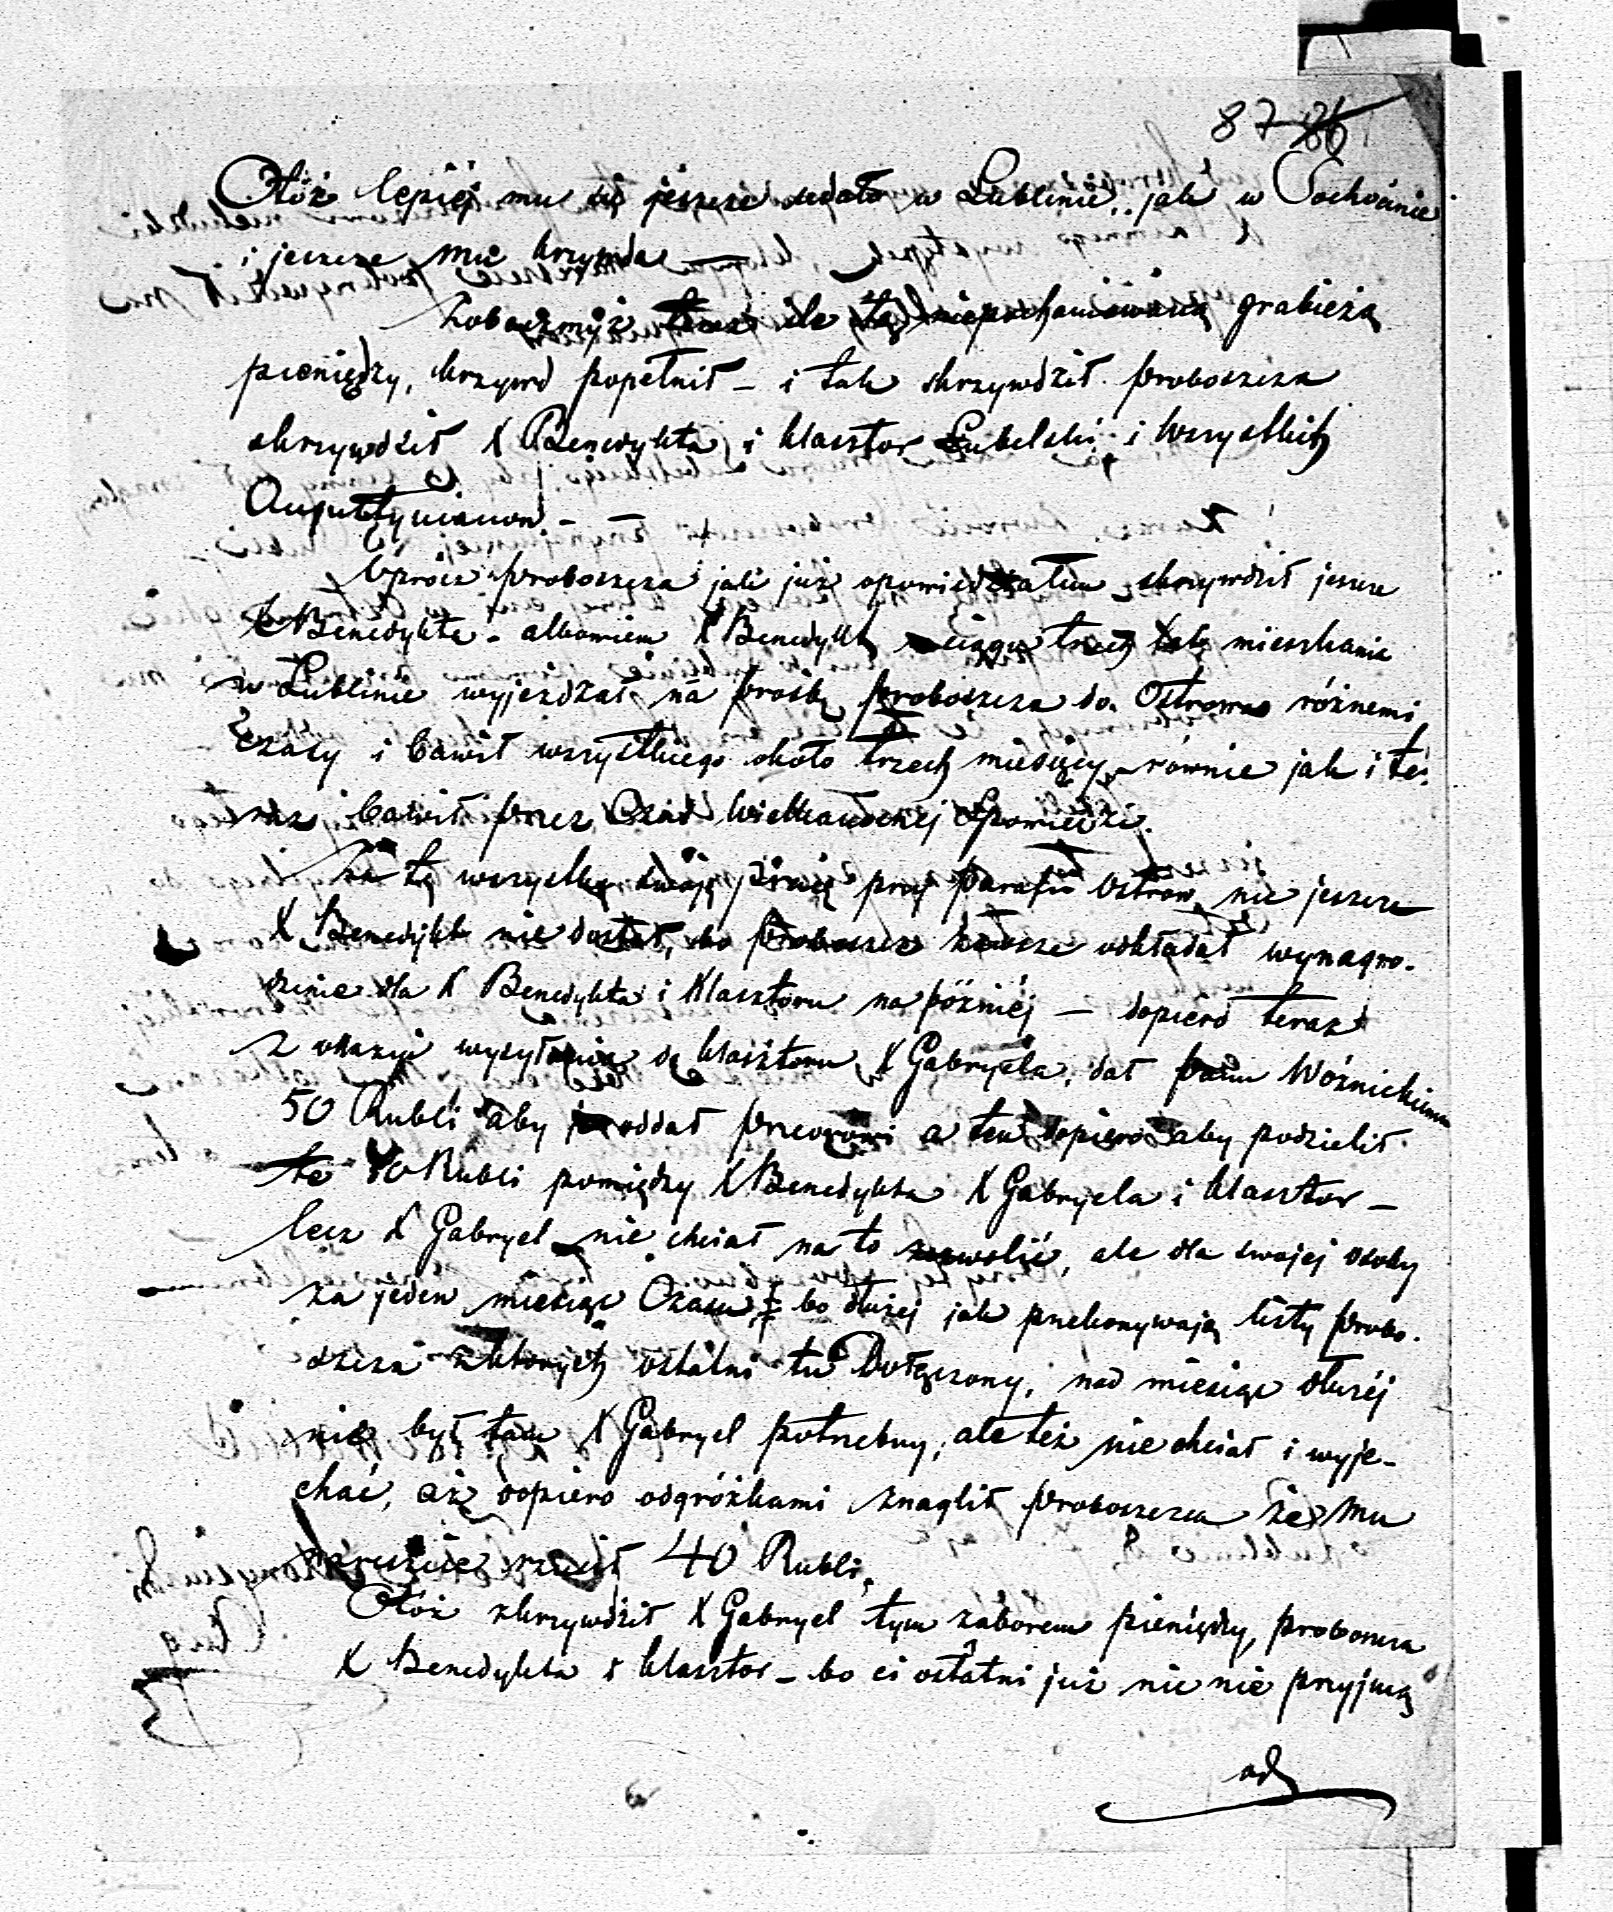 87 86
Otóż lepiéj mu się jeszcze udało w Lublinie, jak w Sochocinie
i jeszcze mu krzywda
Zobaczmyż teraz ile tą grabieżą
pieniędzy, krzywd popełnił – i tak skrzywdził proboszcza
skrzywdził X Benedykta i klasztor Lubelski i wszystkich
Augustyianow. –
Oprócz proboszcza jak już opowiedziałem skrzywdził jeszcze
X Benedykta – albowiem X Benedykt w ciągu trzech lat mieszkania
w Lublinie wyjeżdżał na prośbę proboszcza do Ostrowa różnemi
czasy i bawił wszystkiego około trzech miesięcy – równie jak i te-
raz bawił przez Czas Wielkanocnej Spowiedzi.
Za tę wszystkę swoję pracę przy parafii Ostrow. nic jeszcze
X Benedykt nie dostał, bo proboszcz zawsze odkładał wynagro-
dzenie dla X Benedykta i Klasztoru na późniéj – dopiero teraz
z okazyi wysyłania do klasztoru X Gabryela, dał panu Woźnickiemu
50 Rubli aby je oddał przeorowi a ten dopiero aby podzielił
te 50 Rubli pomiędzy X Benedykta X Gabryela i klasztor –
lecz X Gabryel nie chciał na to zezwolić, ale dla swojej osoby
za jeden miesiąc Czasu, bo dłużej jak przekonywają listy probo-
szcza z których ostatni tu Dołączony, nad miesiąc dłużéj
nie był tam X Gabryel potrzebny, ale też nie chciał i wyje-
chać, aż dopiero odgróżkami znaglił proboszcza że mu
40 Rubli,
Otóż skrzywdził X Gabryel tym zaborem pieniędzy, proboszcza
X Benedykta i klasztor – bo ci ostatni już nic nie przyjmą
od